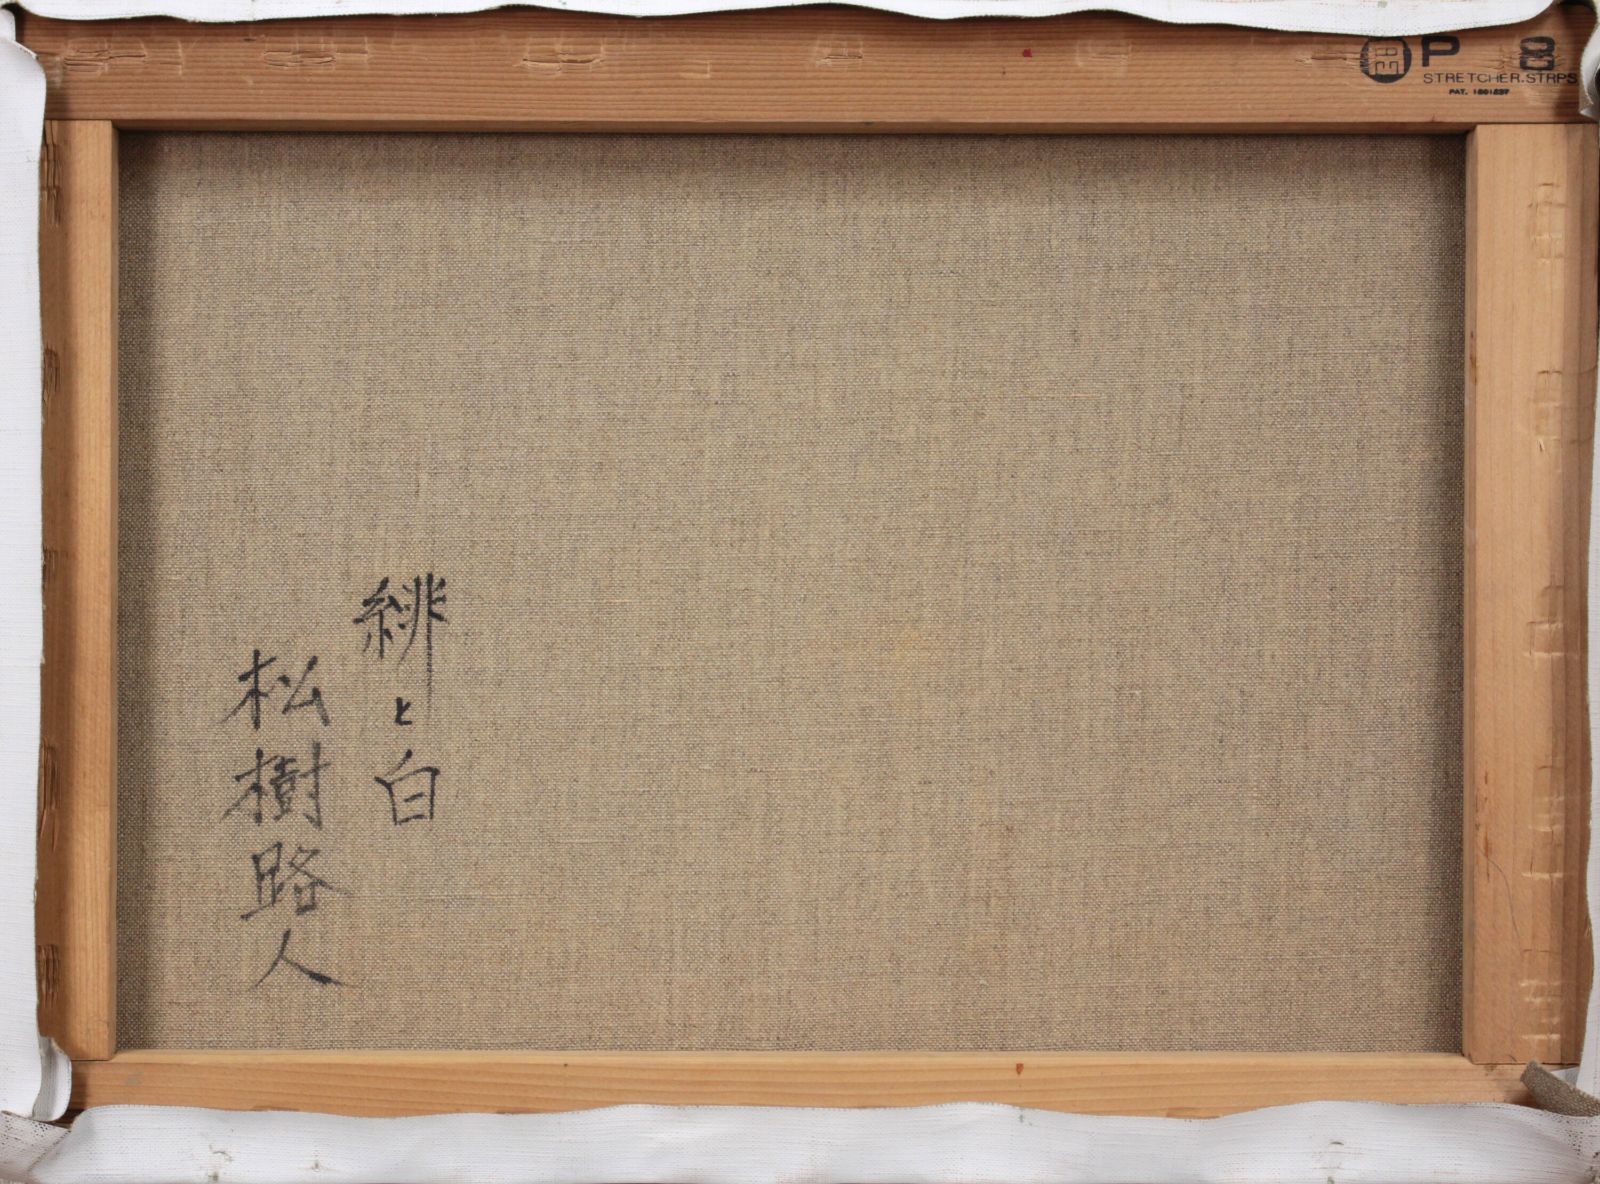 P 8
STRETCHER.STRPS
緋と白
松樹路人